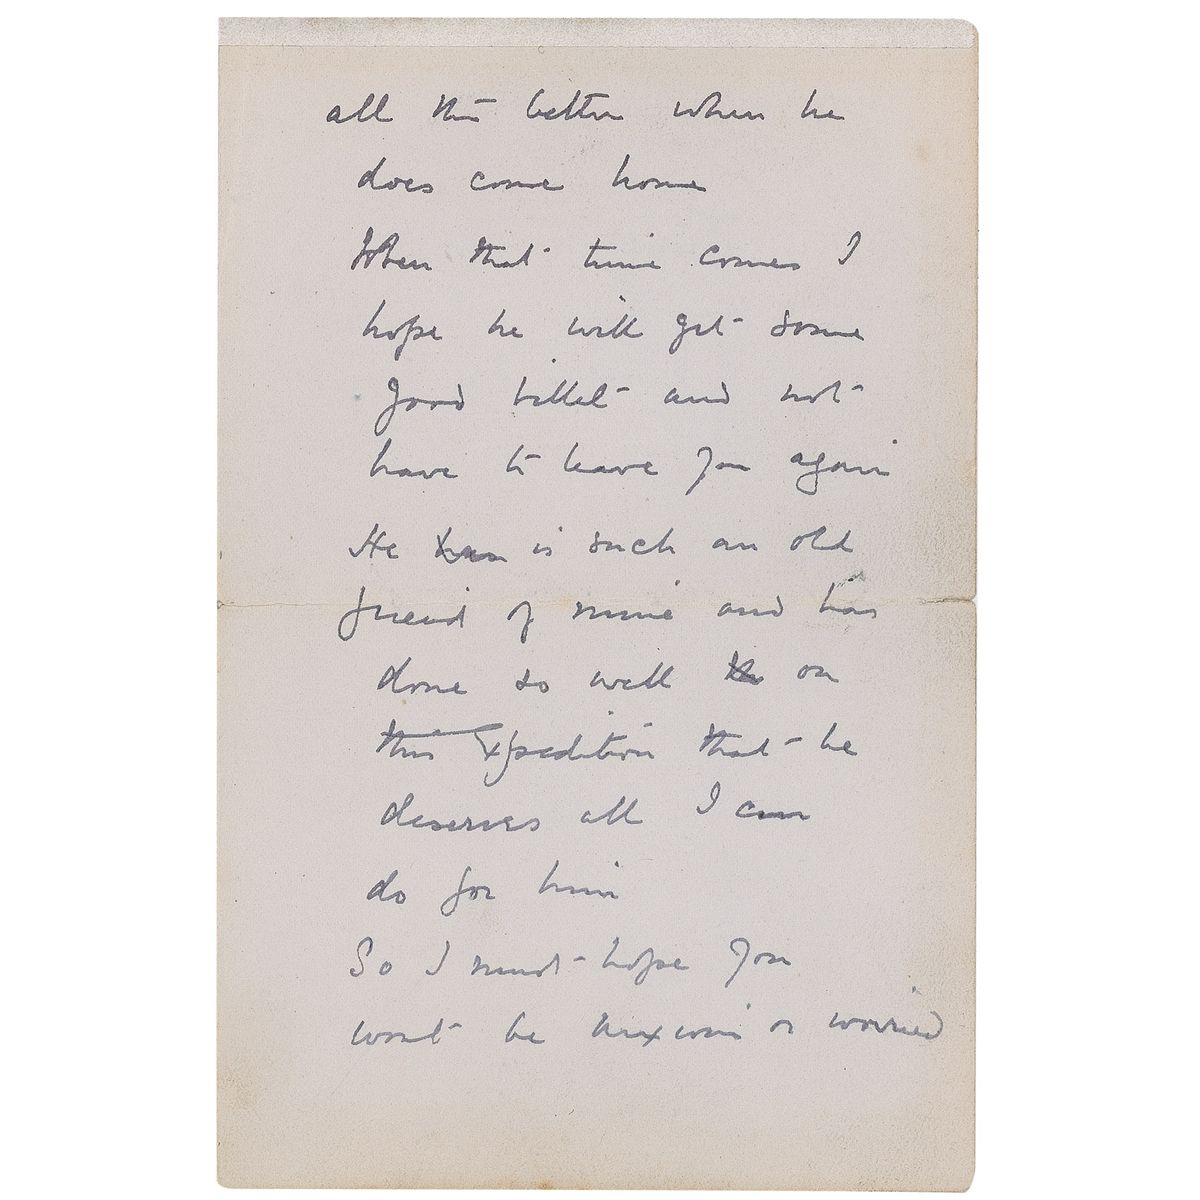 all the better when he
does come home
When that time comes I
hope he will get some
good billet and not
have to leave you again
He has is such an old
friend of mine and has
done so well on
this Expedition that he
deserves all I can
do for him
So I must hope you
wont be anxious or worried